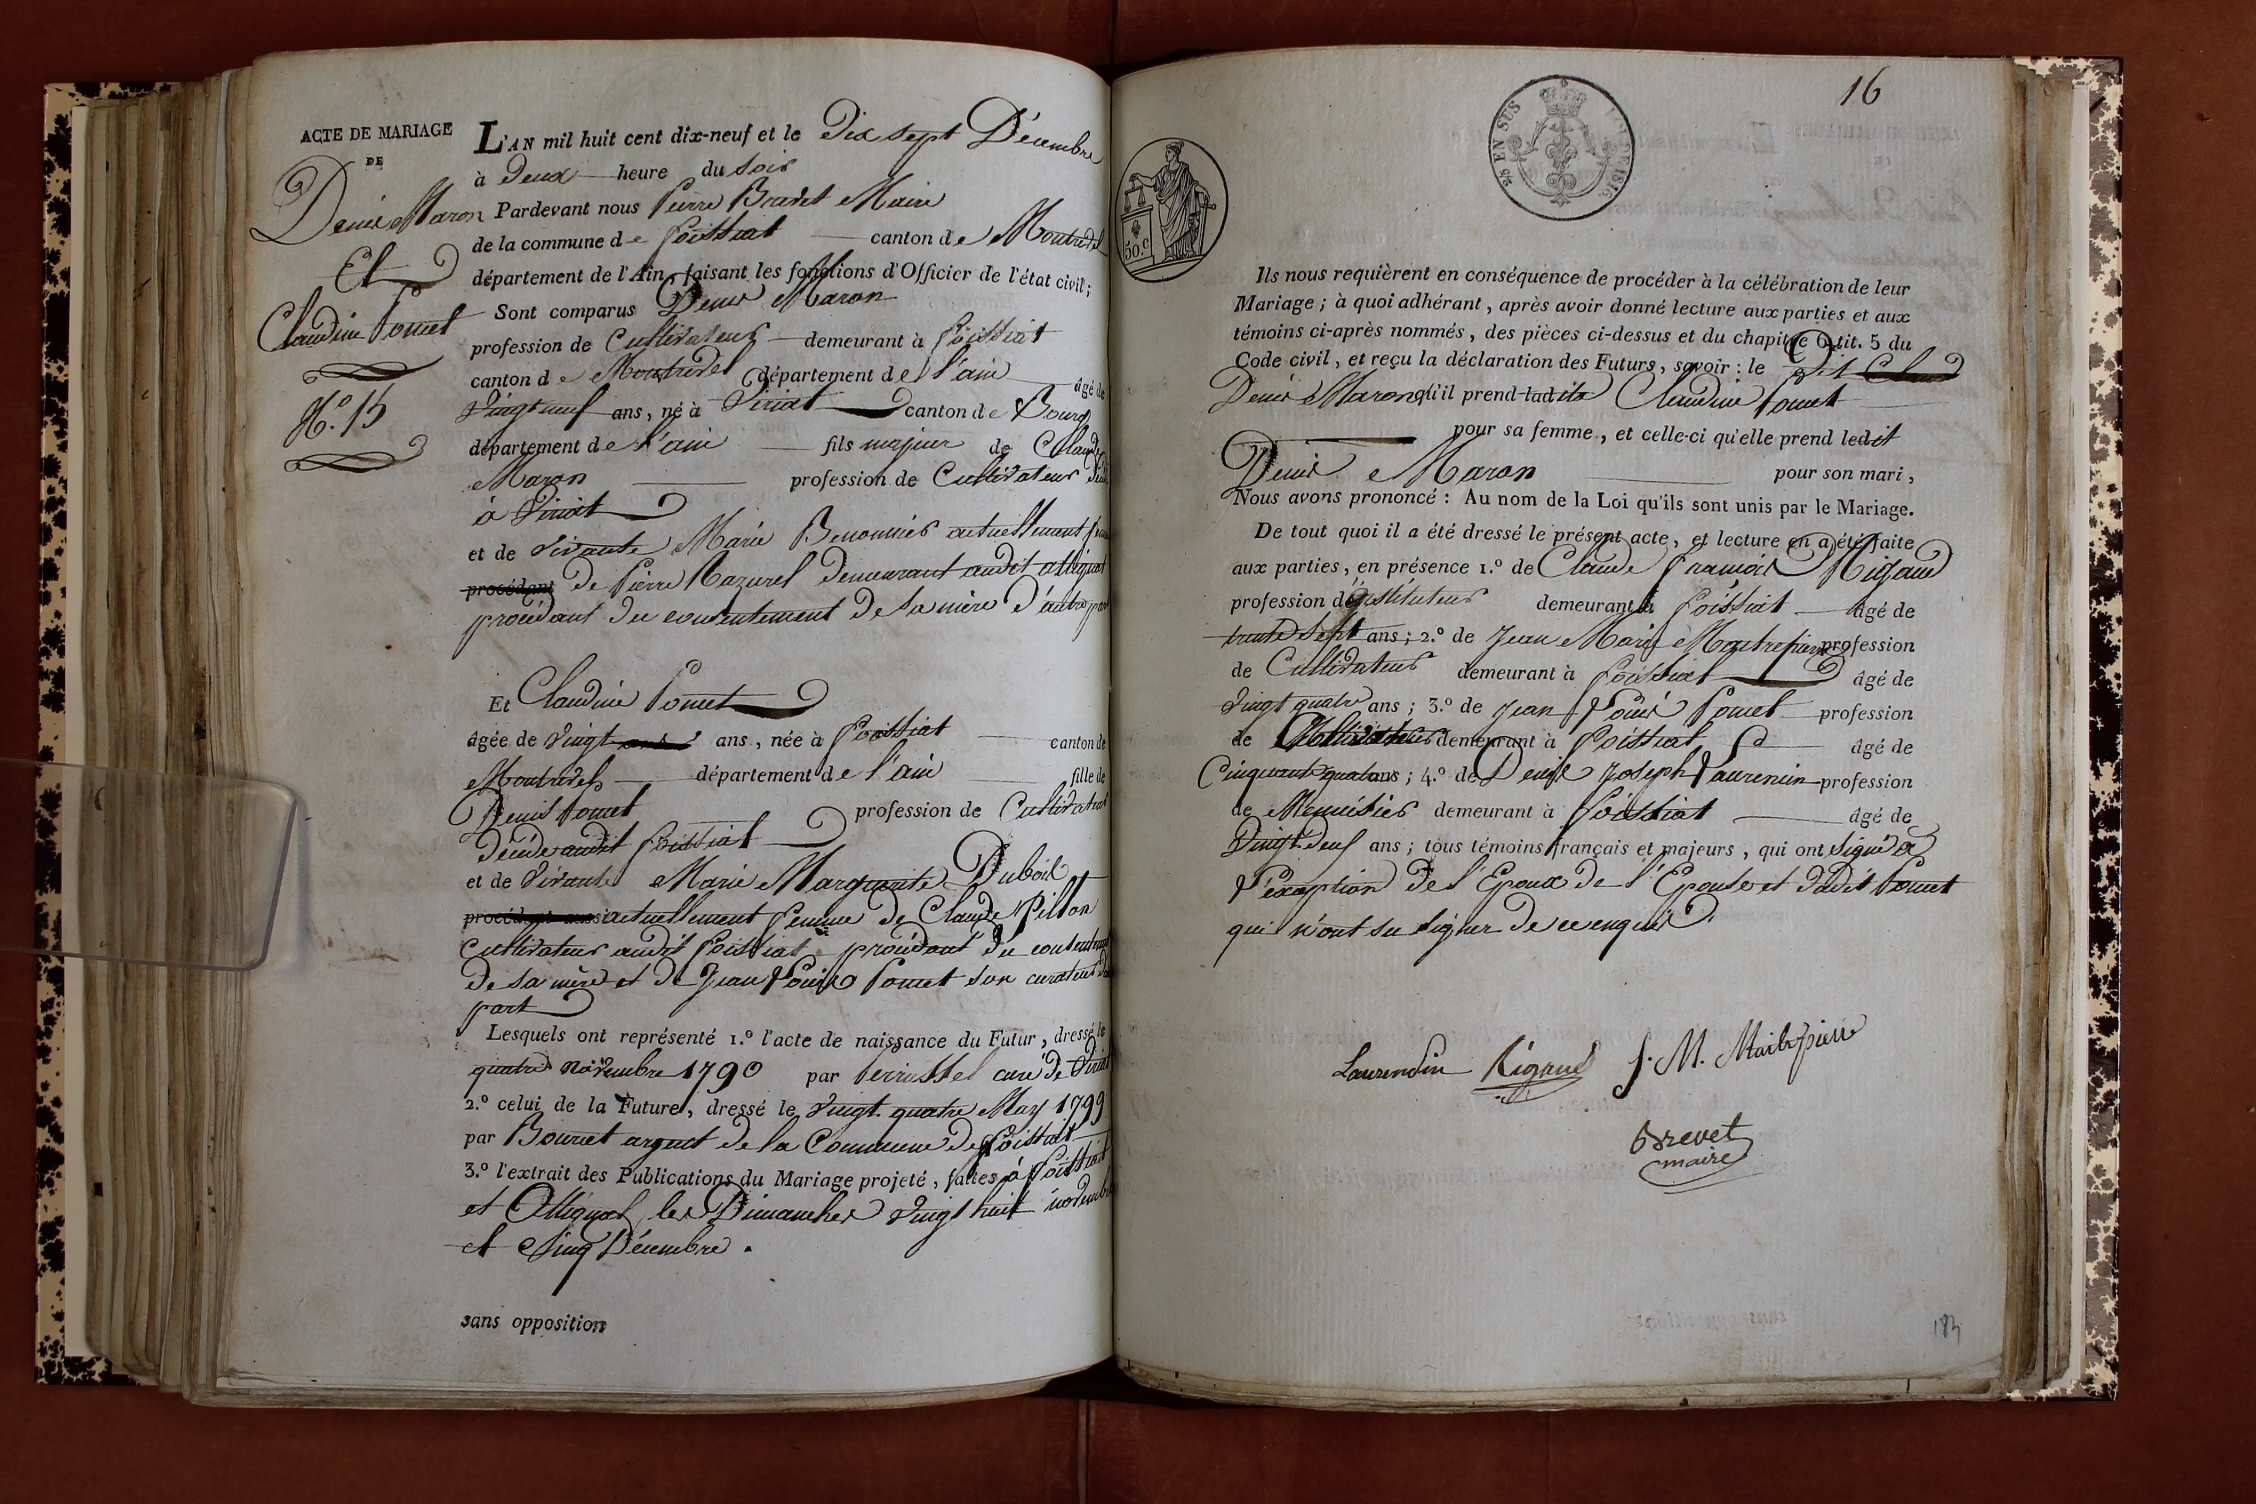 ACTE DE MARIAGE
DE
Denis Maron
Et
Claudine Pomet
N.° 15
L'AN mil huit cent dix-neuf et le Dix sept Décembre
à Deux heure du soir
Pardevant nous Pierre Brevet Maire
de la commune de Foissiat canton de Montrevel
département de l'Ain, faisant les fonctions d'Officier de l'état civil;
Sont comparus Denis Maron
profession de Cultivateur demeurant à Foissiat
canton de Montrevel département de l'ain âgé de
Vingt neuf ans, né à Viriat canton de Bourg
département de l'ain fils majeur de Claude
Maron profession de Cultivateur
à Viriat
et de vivante Marie actuellement femme
procédant de Pierre Mazurel demeurant audit attignat
procédant du consentement de sa mère d'autre part
Et Claudine Pomet
âgée de vingt ans, née à Foissiat canton de
Montrevel département de l'ain fille de
Denis Pomet profession de Cultivateur
décédé audit Foissiat
et de vivante Marie Marguerite Dubois
procédant aussi actuellement femme de Claude Pillon
Cultivateur audit Foissiat procédant du consentement
de sa mère et de Jean Louis Pomet son curateur
part
Lesquels ont représenté 1.° l'acte de naissance du Futur, dressé le
quatre novembre 1790 par curé de Viriat
2.° celui de la Future, dressé le vingt quatre May 1799
par Bournet argent de la Commune de Foissiat
3.° l'extrait des Publications du Mariage projeté, faites à Foissiat
et Attignat les Dimanches vingt huit novembre
et Cinq Décembre.
sans opposition
16
25 EN SUS
50.c
Ils nous requièrent en conséquence de procéder à la célébration de leur
Mariage; à quoi adhérant, après avoir donné lecture aux parties et aux
témoins ci-après nommés, des pièces ci-dessus et du chapitre 6 tit. 5 du
Code civil, et reçu la déclaration des Futurs, savoir: le Dit Claud
Denis Maron qu'il prend ladite Claudine Pomet
pour sa femme, et celle-ci qu'elle prend ledit
Denis Maron pour son mari,
Nous avons prononcé: Au nom de la Loi qu'ils sont unis par le Mariage.
De tout quoi il a été dressé le présent acte, et lecture en a été faite
aux parties, en présence 1.° de Claude François Rigaud
profession d'Instituteur demeurant à Foissiat âgé de
trente sept ans; 2.° de Jean Marie Maitrepierre profession
de Cultivateur demeurant à Foissiat âgé de
vingt quatre ans; 3.° de Jean Louis Pomet profession
de Cultivateur demeurant à Foissiat âgé de
Cinquante quatre ans; 4.° de Denis Joseph Laurencin profession
de Menuisier demeurant à Foissiat âgé de
Vingt Deux ans; tous témoins français et majeurs, qui ont signé à
l'exception de l'Epoux de l'Epouse et dudit Pomet
qui n'ont su signer de ce enquis.
Laurendin Rigaud J. M. Maitrepierre
Brevet
maire
183